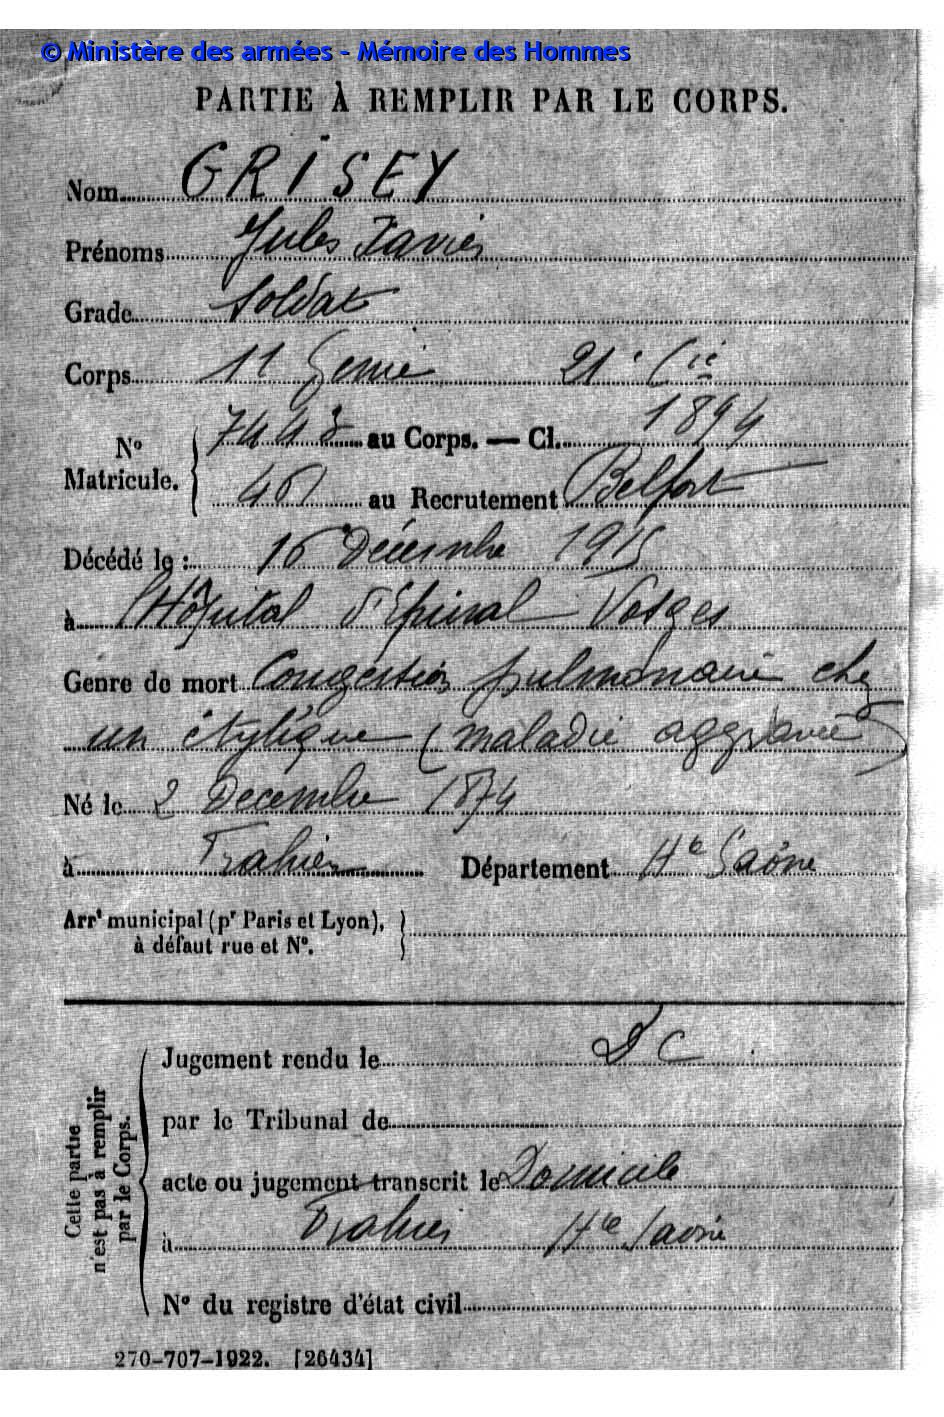 © Ministère des armées - Mémoire des Hommes
PARTIE À REMPLIR PAR LE CORPS.
Nom GRISEY
Prénoms Jules Xavier
Grade Soldat
Corps 11 Genie 21e Cie
7443 au Corps. — Cl. 1894
N° Matricule.
461 au Recrutement Belfort
Décédé le : 16 Décembre 1915
à l'Hôpital d'Epinal Vosges
Genre de mort Congestion pulmonaire chez
un étylique (maladie aggravée)
Né le 2 Decembre 1874
à Frahier Département Hte Saône
Arrt municipal (pr Paris et Lyon),
à défaut rue et N°.
Jugement rendu le DC
par le Tribunal de
acte ou jugement transcrit le Domicile
à Frahier Hte Saône
N° du registre d'état civil
Cette partie
n'est pas à remplir
par le Corps.
270-707-1922. [26434]